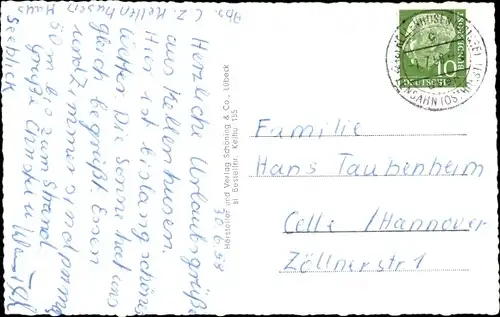 Abs. C. Z. Kellenhusen Haus
Seeblick
30.6.58
Herzliche Urlaubsgrüße
aus Kellenhusen.
Hier ist bislang schönes
Wetter. Die Sonne hat uns
gleich begrüßt. Essen
und Zimmer sind prima
50 m bis zum Strand
Hersteller und Verlag Schöning & Co., Lübeck
Bl Bestellnr. Kelhu 155
10
DEUTSCHE
Familie
Hans Taubenheim
Celle / Hannover
Zöllnerstr 1